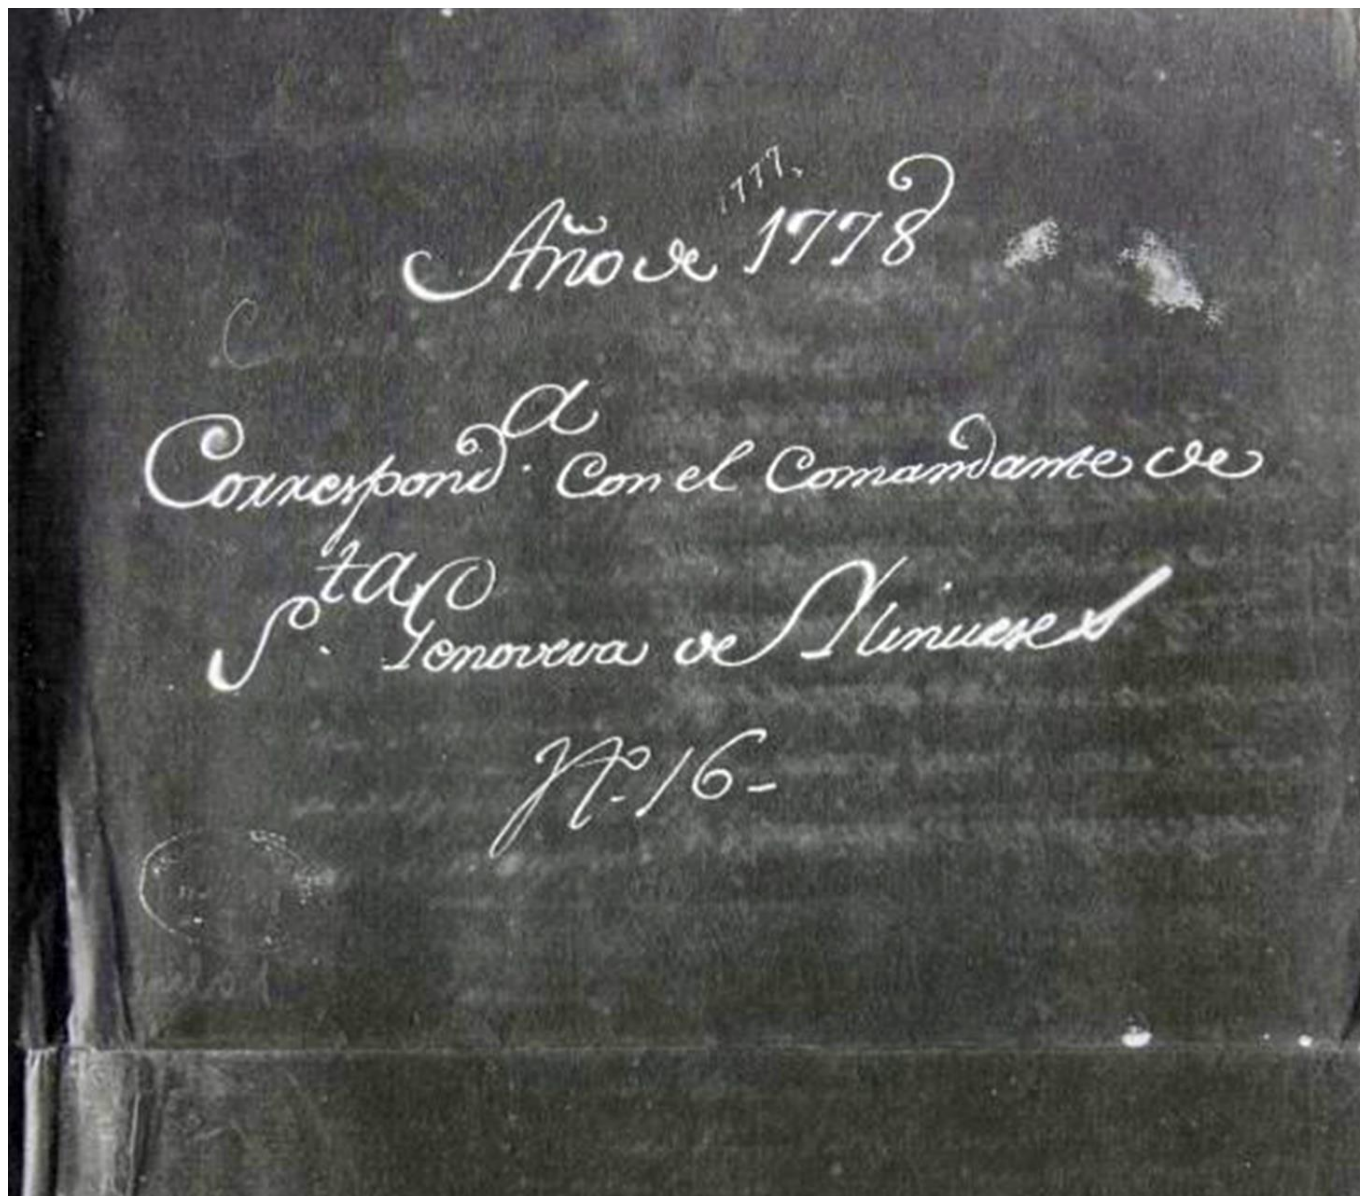 1777.
Año de 1778
Correspond.a con el Comandante de
S.ta Genoveva de Ylinueses
N.o 16-